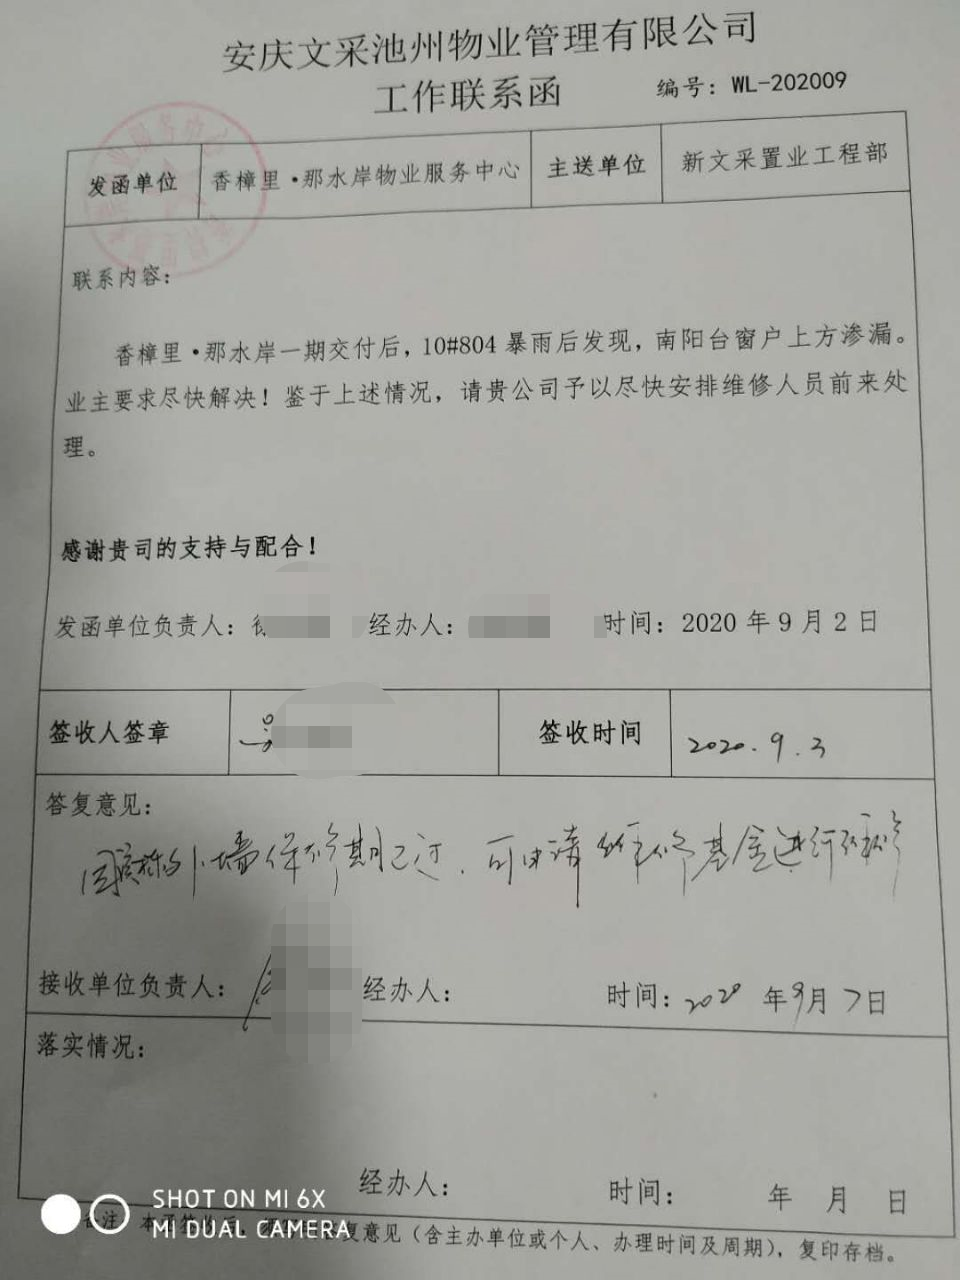 安庆文采池州物业管理有限公司
工作联系函 编号：WL-202009
发函单位 香樟里·那水岸物业服务中心 主送单位 新文采置业工程部
联系内容：
香樟里·那水岸一期交付后，10#804 暴雨后发现，南阳台窗户上方渗漏。
业主要求尽快解决！鉴于上述情况，请贵公司予以尽快安排维修人员前来处
理。
感谢贵司的支持与配合！
发函单位负责人： 经办人： 时间：2020 年 9 月 2 日
签收人签章 签收时间 2020.9.3
答复意见：
因 外墙保修期已过，可申请维修基金进行维修
接收单位负责人： 经办人： 时间：2020 年 9 月 7 日
落实情况：
经办人： 时间： 年 月 日
备注：本函签收后， 复意见（含主办单位或个人、办理时间及周期），复印存档。
SHOT ON MI 6X
MI DUAL CAMERA